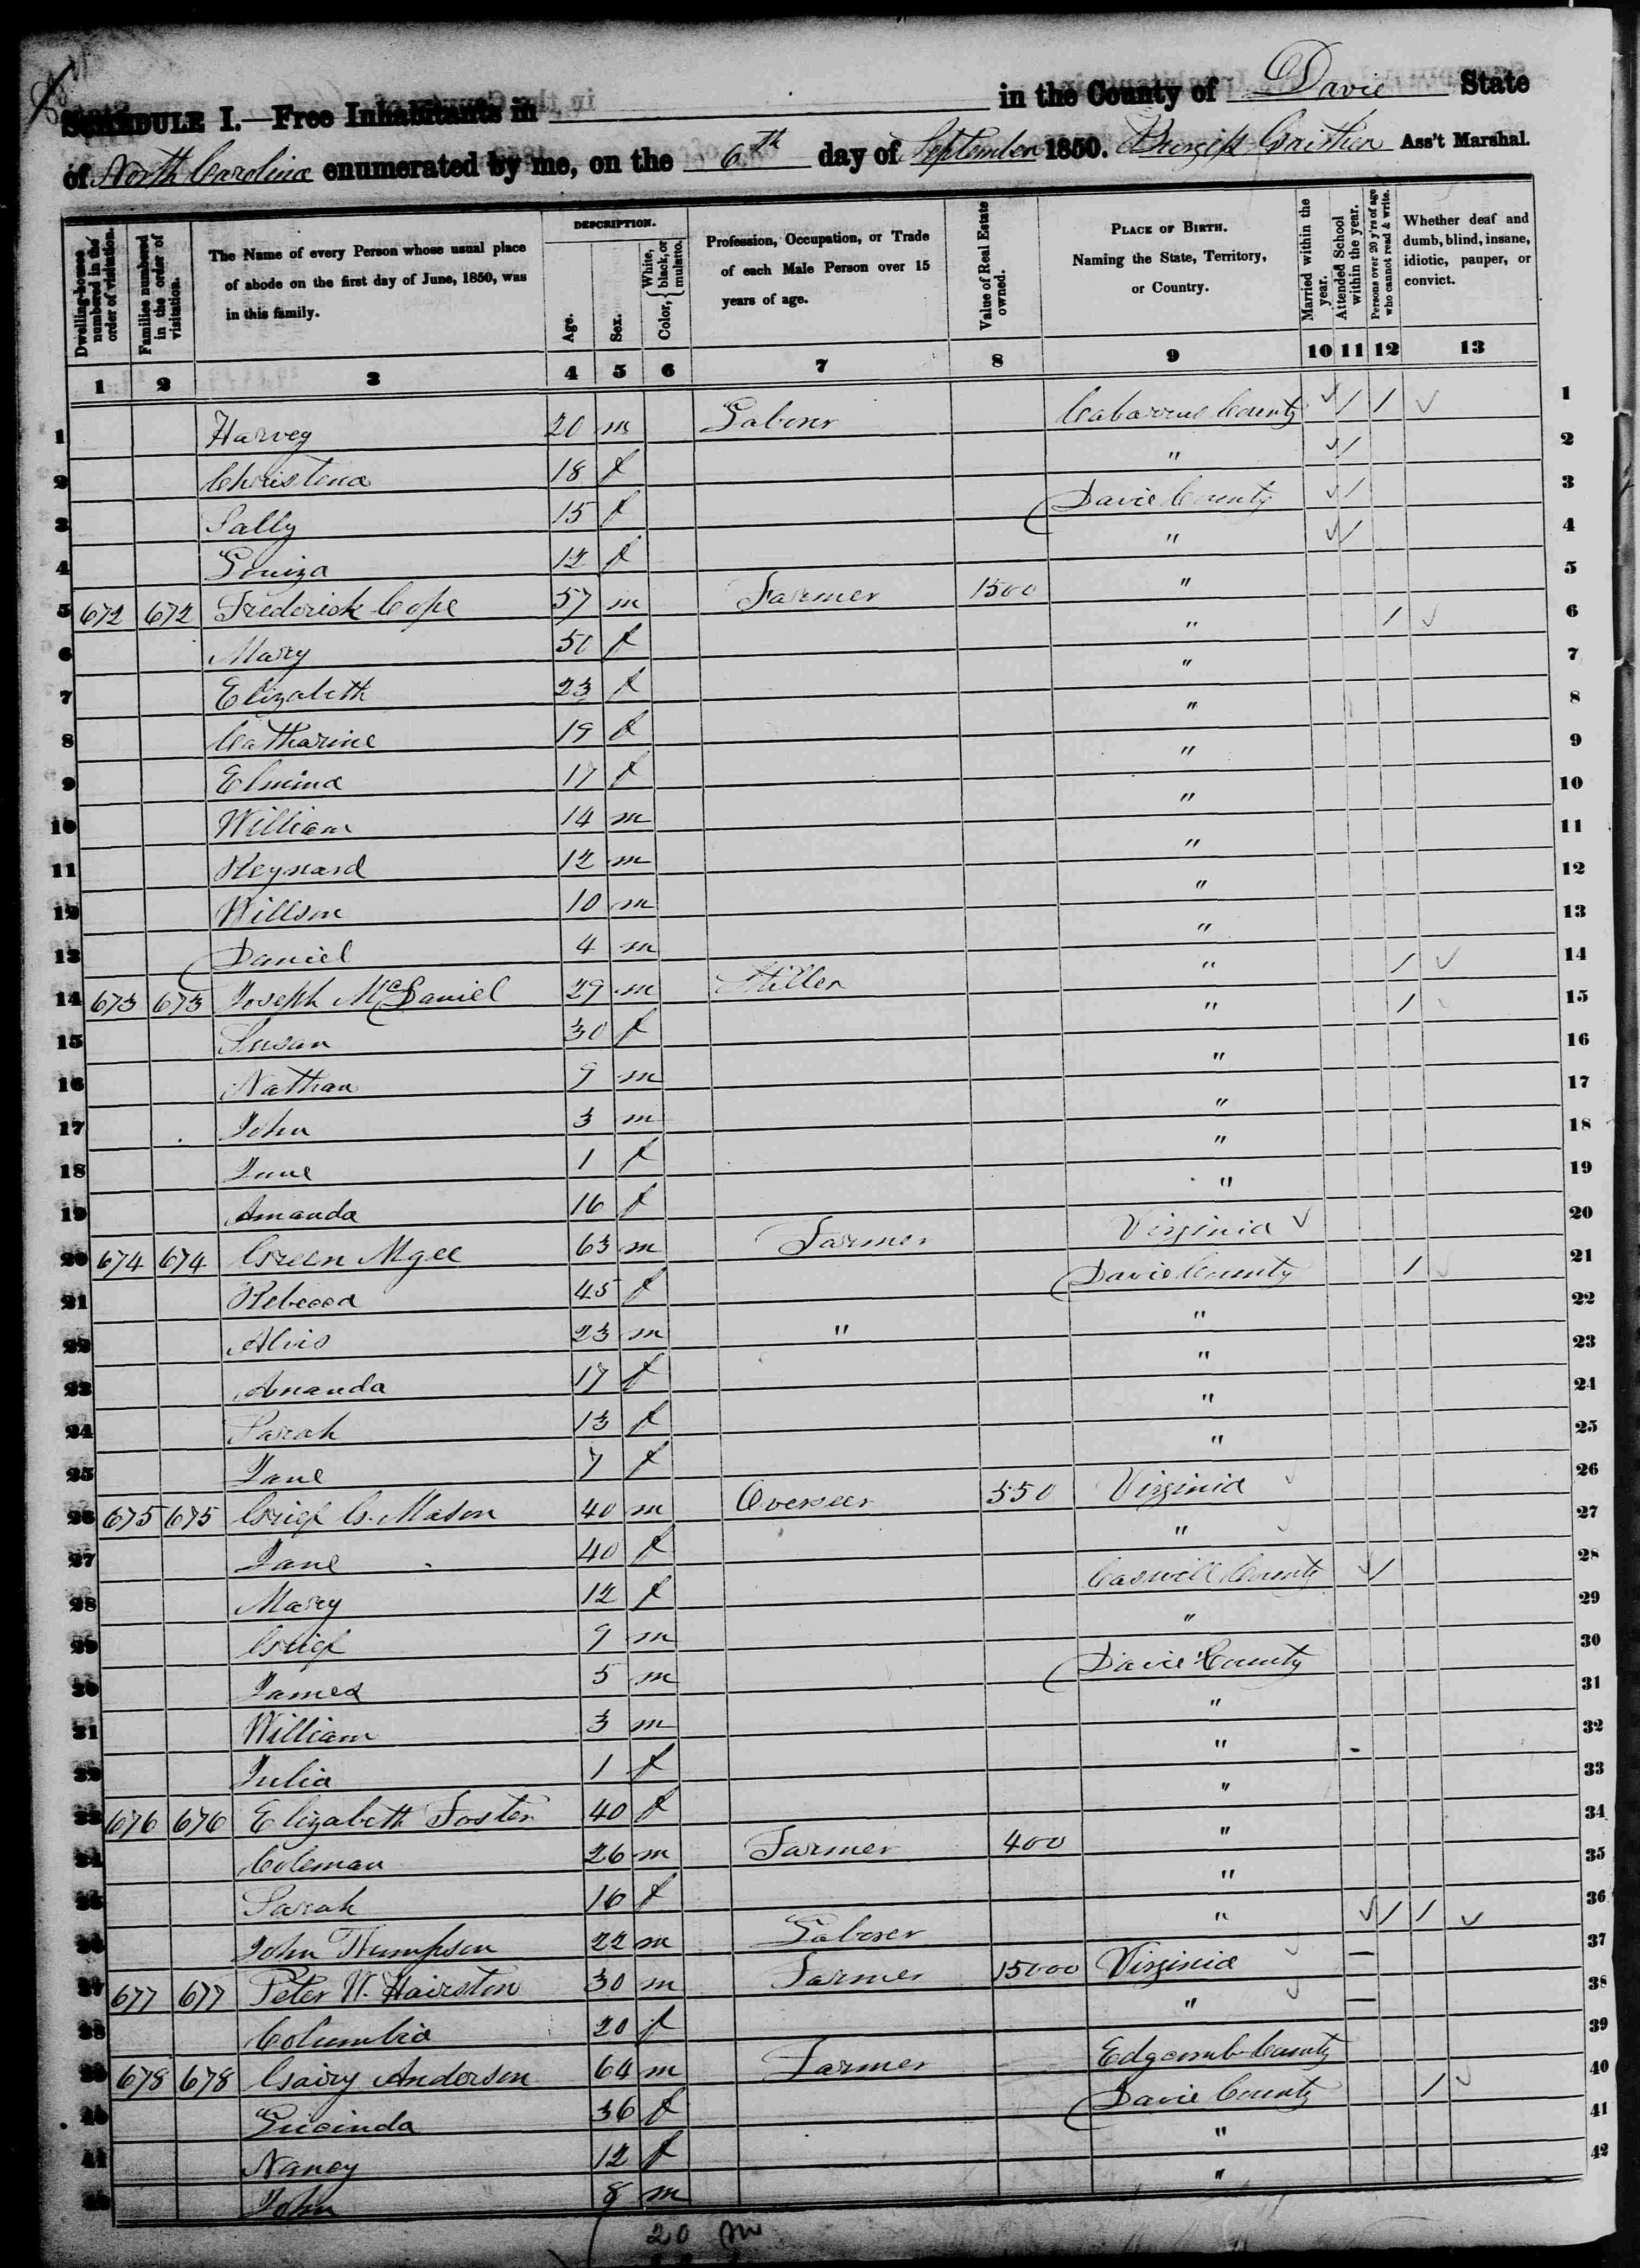 SCHEDULE I.—Free Inhabitants in in the County of Davie State
of North Carolina enumerated by me, on the 6th day of September 1850. Burgess Gaither Ass't Marshal.
Dwelling-houses numbered in the order of visitation.
Families numbered in the order of visitation.
The Name of every Person whose usual place of abode on the first day of June, 1850, was in this family.
DESCRIPTION.
Age.
Sex.
Color, White, black, or mulatto.
Profession, Occupation, or Trade of each Male Person over 15 years of age.
Value of Real Estate owned.
PLACE OF BIRTH. Naming the State, Territory, or Country.
Married within the year.
Attended School within the year.
Persons over 20 y'rs of age who cannot read & write.
Whether deaf and dumb, blind, insane, idiotic, pauper, or convict.
1 2 3 4 5 6 7 8 9 10 11 12 13
1 Harvey 20 m Laborer Cabarrus County ✓ / / ✓ 1
2 Christena 18 f " ✓ / 2
3 Sally 15 f Davie County ✓ / 3
4 Louiza 12 f " ✓ / 4
5 672 672 Frederick Cope 57 m Farmer 1500 " 5
6 Mary 50 f " / ✓ 6
7 Elizabeth 23 f " 7
8 Catharine 19 f " 8
9 Elmina 17 f " 9
10 William 14 m " 10
11 Reynard 12 m " 11
12 Willson 10 m " 12
13 Daniel 4 m " 13
14 673 673 Joseph McDaniel 29 m Miller " / ✓ 14
15 Susan 30 f " / ✓ 15
16 Nathan 9 m " 16
17 John 3 m " 17
18 Jane 1 f " 18
19 Amanda 16 f " 19
20 674 674 Green Mgee 63 m Farmer Virginia ✓ 20
21 Rebecca 45 f Davie County / ✓ 21
22 Alvis 23 m " " 22
23 Amanda 17 f " 23
24 Sarah 13 f " 24
25 Jane 7 f " 25
26 675 675 Grief G. Mason 40 m Overseer 550 Virginia ✓ 26
27 Jane 40 f " ✓ 27
28 Mary 12 f Caswell County ✓ / 28
29 Grief 9 m " 29
30 James 5 m Davie County 30
31 William 3 m " 31
32 Julia 1 f " 32
33 676 676 Elizabeth Foster 40 f " 33
34 Coleman 26 m Farmer 400 " 34
35 Sarah 16 f " 35
36 John Thumpson 22 m Laborer " ✓ / / ✓ 36
37 677 677 Peter W. Hairston 30 m Farmer 15000 Virginia ✓ — 37
38 Columbia 20 f " ✓ — 38
39 678 678 Gairy Anderson 64 m Farmer Edgcomb County 39
40 Lucinda 36 f Davie County / ✓ 40
41 Nancy 12 f " 41
42 John 8 m " 42
20 m